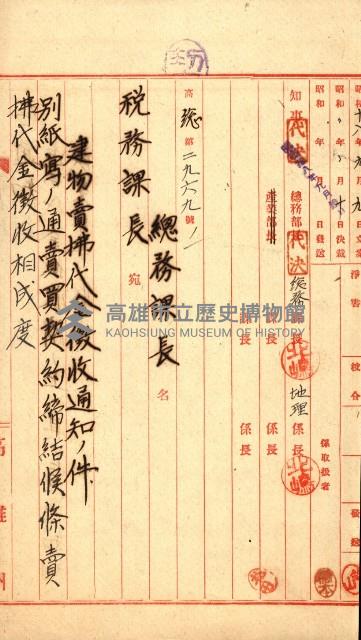 昭和 年 月 日發送
昭和 年 月十日決裁
知事 代決
總務部長 代決
產業部長
總務課長
地理係長
課長 係長
課長 係長
係取扱者
淨書
校合
發送
高總第二九六九號ノ一
總務課長 名
稅務課長 宛
建物賣拂代金徵收通知ノ件
別紙寫ノ通賣買契約締結候條賣
拂代金徵收相成度
高雄市立歷史博物館
KAOHSIUNG MUSEUM OF HISTORY
高雄州